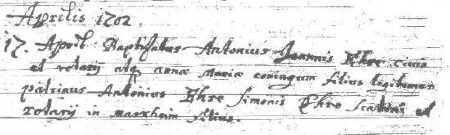 Aprilis 1702.
17. April Baptisatus Antonius Joannis Ehre civis
et rotarij atq annæ mariæ coniugum filius legitimus
patrinus Antonius Ehre simonis Ehre scabini et
rotarij in marxheim filius.